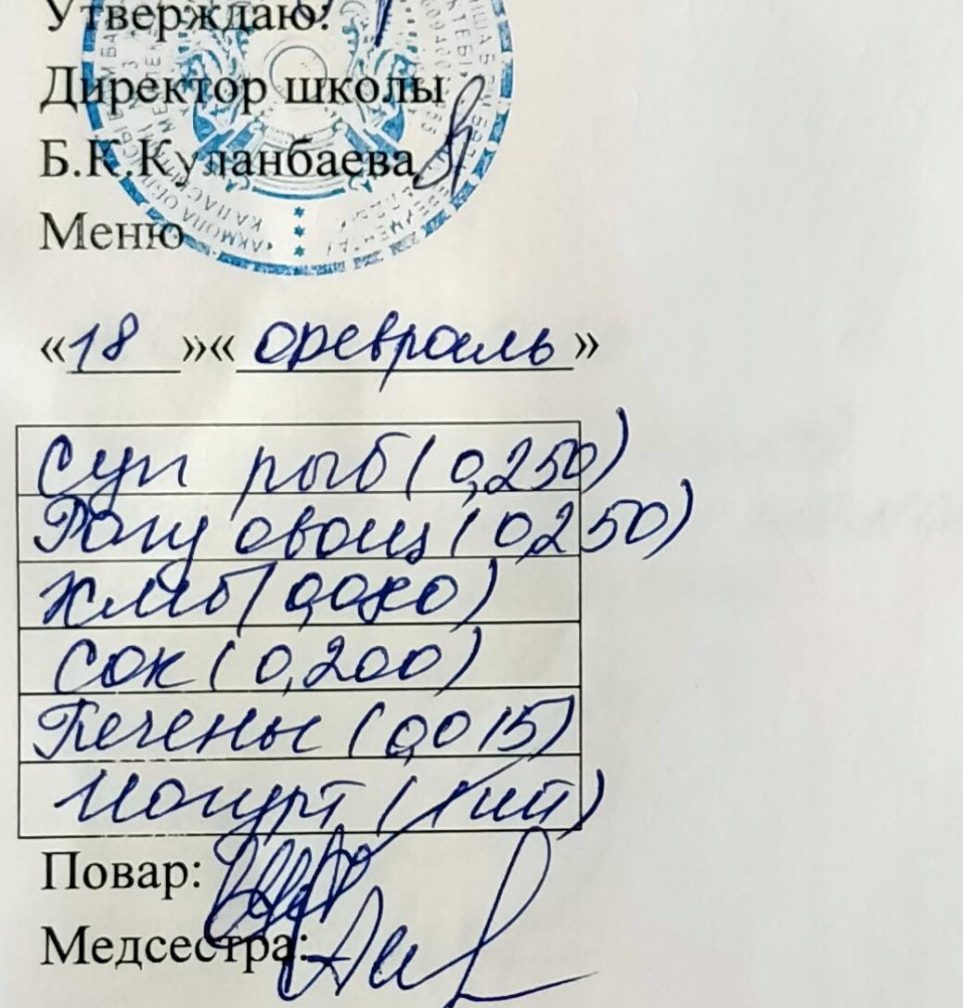 Утверждаю!
Директор школы
Б.К.Куланбаева
Меню
«18»«февраль»
Суп рыб (0,250)
Рагу овощ (0,250)
Хлеб (0,080)
Сок (0,200)
Печенье (0,015)
Йогурт (1 шт)
Повар:
Медсестра: